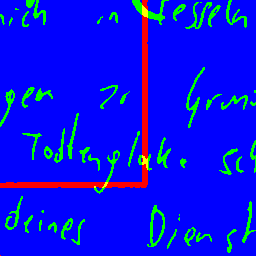 mich in Fesseln
gern zu Grun
Todtenglocke sch
deines Dienst